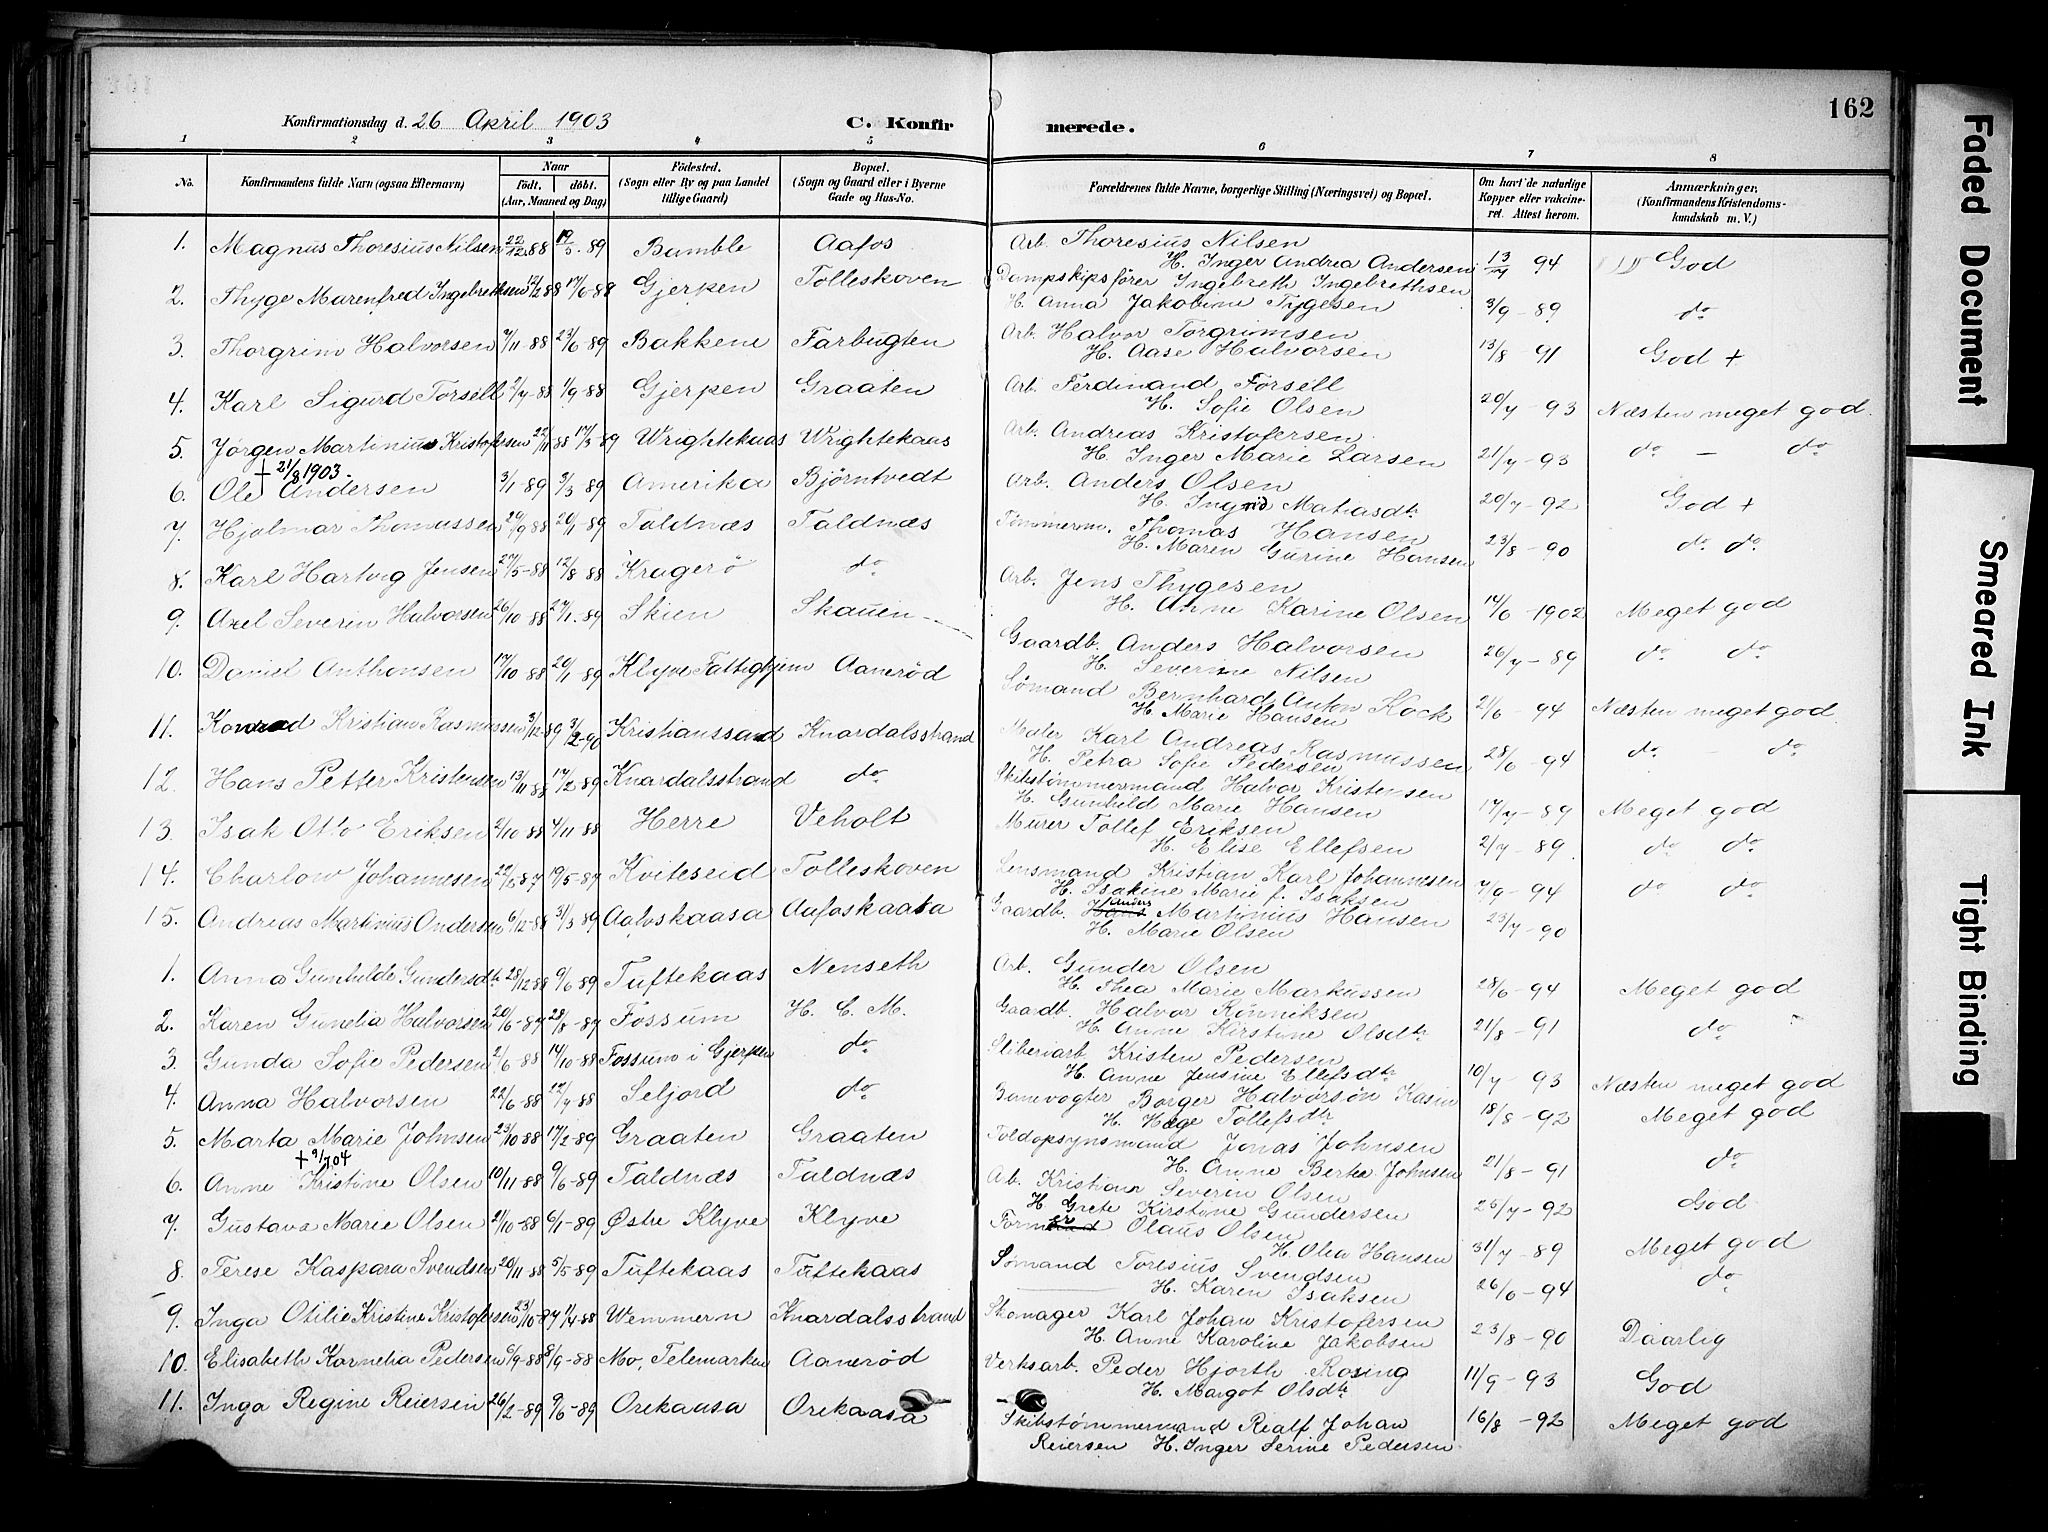 162
Konfirmationsdag d. 26 April 1903 C. Konfirmerede.
1 2 3 4 5 6 7 8
No. Konfirmandens fulde Navn (ogsaa Efternavn) Naar födt. döbt. (Aar, Maaned og Dag) Födested. (Sogn eller By og paa Landet tillige Gaard) Bopæl. (Sogn og Gaard eller i Byerne Gade og Hus-No. Forældrenes fulde Navne, borgerlige Stilling (Næringsvei) og Bopæl. Om havt de naturlige Kopper eller vakcineret. Attest herom. Anmærkninger. (Konfirmandens Kristendomskundskab m. V.)
1. Magnus Thoresius Nilsen 22/12 88 19/5 89 Bamble Aafos Arb. Thoresius Nilsen
H. Inger Andrea Andersen 13/7 94 God
2. Thyge Marenfred Ingebrethsen 12/2 88 17/6-88 Gjerpen Tolleskoven Dampskipsfører Ingebreth Ingebrethsen
H. Anna Jakobine Tygesen 3/9-89 do
3. Thorgrim Halvorsen 7/11-88 23/6-89 Bakkene Farbugten Arb. Halvor Torgrimsen
H. Aase Halvorsen 13/8-91 God +
4. Karl Sigurd Forsell 2/7-88 1/9-88 Gjerpen Graaten Arb. Ferdinand Forsell
H. Sofie Olsen 20/7-93 Næsten meget god.
5. Jørgen Martinius Kristofersen 22/11 88 17/3-89 Wrightekaas Wrightekaas Arb. Andreas Kristofersen
H. Inger Marie Larsen 21/7-93 do - do
+ 21/8 1903.
6. Ole Andersen 3/1-89 3/3-89 Amerika Bjørntvedt Arb. Anders Olsen
H. Ingrid Mathiasdtr 20/7-92 God +
7. Hjalmar Thomassen 29/9 88 20/1-89 Faldnæs Faldnæs Timmerm. Thomas Hansen
H. Maren Gurine Hansen 23/8-90 do do
8. Karl Hartvig Jensen 27/5-88 12/8-88 Kragerö do Arb. Jens Thygesen
H. Anne Karine Olsen 14/6-1902 Meget god
9. Axel Severin Halvorsen 26/10-88 27/1-89 Skien Skauen Gaardb. Anders Halvorsen
H. Severine Nilsen 26/7-89 do do
10. Daniel Anthonsen 17/10-88 20/1-89 Klyve Fattighjem Aanerød Sømand Bernhard Anton Kock
H. Marie Hansen 21/6-94 Næsten meget god
11. Konrad Kristian Rasmussen 3/12-89 3/2-90 Kristianssand Knardalsstrand Maler Karl Andreas Rasmussen
H. Petra Sofie Pedersen 28/6-94 do - do
12. Hans Petter Kristensen 13/11-88 17/2-89 Knardalsstrand do Skibstømmermand Halvor Kristensen
H. Gunhild Marie Hansen 17/7-89 Meget god
13. Isak Otto Eriksen 2/10-88 4/11-88 Herre Veholt Murer Tollef Eriksen
H. Elise Ellefsen 2/7-89 do do
14. Charlow Johannesen 87 19/5-87 Kviteseid Tolleskoven Lensmand Kristian Karl Johannesen
H. Isakine Marie f. Isaksen 7/9-94 do do
15. Andreas Martinius Andersen 6/12-88 31/3-89 Aafoskaasa Aafoskaasa Gaardb. Anders Martinius Hansen
H. Marie Olsen 23/7-90
1. Anna Gunhilde Gundersdtr 28/12 88 9/6-89 Tuftekaas Nenseth Arb. Gunder Olsen
H. Thea Marie Markussen 28/6-94 Meget god
2. Karen Gunelia Halvorsen 20/6-87 28/8-87 Fossum H. C. M. Gaardb. Halvor Rønniksen
H. Anne Kirstine Olsdtr 21/8-91 do
3. Gunda Sofie Pedersen 2/6-88 14/10-88 Fossum i Gjerpen do Sliberiarb. Kristen Pedersen
H. Anne Jensine Ellefsdtr 10/7-93 Næsten meget god
4. Anna Halvorsen 22/6-88 22/7-88 Seljord do Banevogter Borger Halvorsøn Kasin
H. Hege Tollefsdtr 18/8-92 Meget god
5. Marta Marie Johnsen 23/10 88 17/2-89 Graaten Graaten Toldopsynsmand Jonas Johnsen
H. Anne Berte Johnsen 21/8-91 do
+ 9/7 04
6. Anne Kristine Olsen 10/11-88 9/6-89 Faldnæs Faldnæs Arb. Kristian Severin Olsen
H. Grete Kirstine Gundersen 25/7-92 God
7. Gustava Marie Olsen 2/10-88 6/1-89 Østre Klyve Klyve Former Olaus Olsen
H. Olea Hansen 31/7-89 Meget god
8. Terese Kaspara Svendsen 20/11 88 5/5-89 Tuftekaas Tuftekaas Sømand Toresius Svendsen
H. Karen Isaksen 26/6-94 do
9. Inga Otilie Kristine Kristofersen 23/10-87 1/4-88 Wemmern Knardalsstrand Skomager Karl Johan Kristofersen
H. Anne Karoline Jakobsen 23/8-90 Daarlig
10. Elisabeth Kornelia Pedersen 6/9-88 8/9-88 Mo, Telemarken Aanerød Verksarb. Peder Hjorth Rosing
H. Margot Olsdtr 11/9-93 God
11. Inga Regine Reiersen 26/2-89 9/6-89 Orekaasa Orekaasa Skibstømmermand Realf Johan
Reiersen H. Inger Serine Pedersen 16/8-92 Meget god
Faded Document
Smeared Ink
Tight Binding